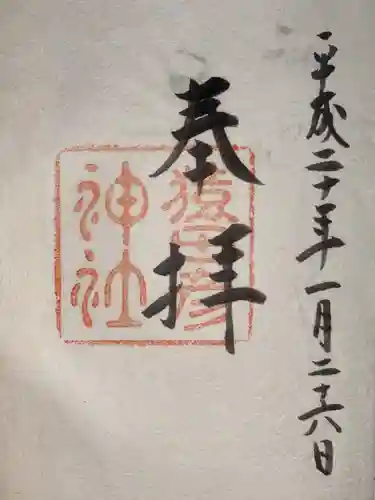 平成二十年一月二十六日
奉拝
猿田彦
神社